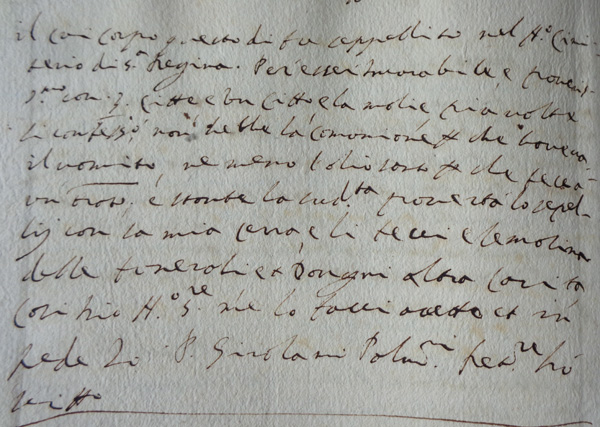 il cui corpo questo di fu seppellito nel N.º Cimi-
terio di S.ta Regina. Per esser miserabile, e poveris-
simo con 3. citte e un citto e la molie più volte
si confessò, non li dette la comonione p che bovea
il vomito, ne meno l'olio santo p che facea
un e stante la sud.ta povertà lo sepel-
lij con la mia cera e li feci elemosina
delle funerali et D'ongni altra carità
così Dio N.º S.re me lo facci accetto et in
fede Io P. Girolamo hò
scritto